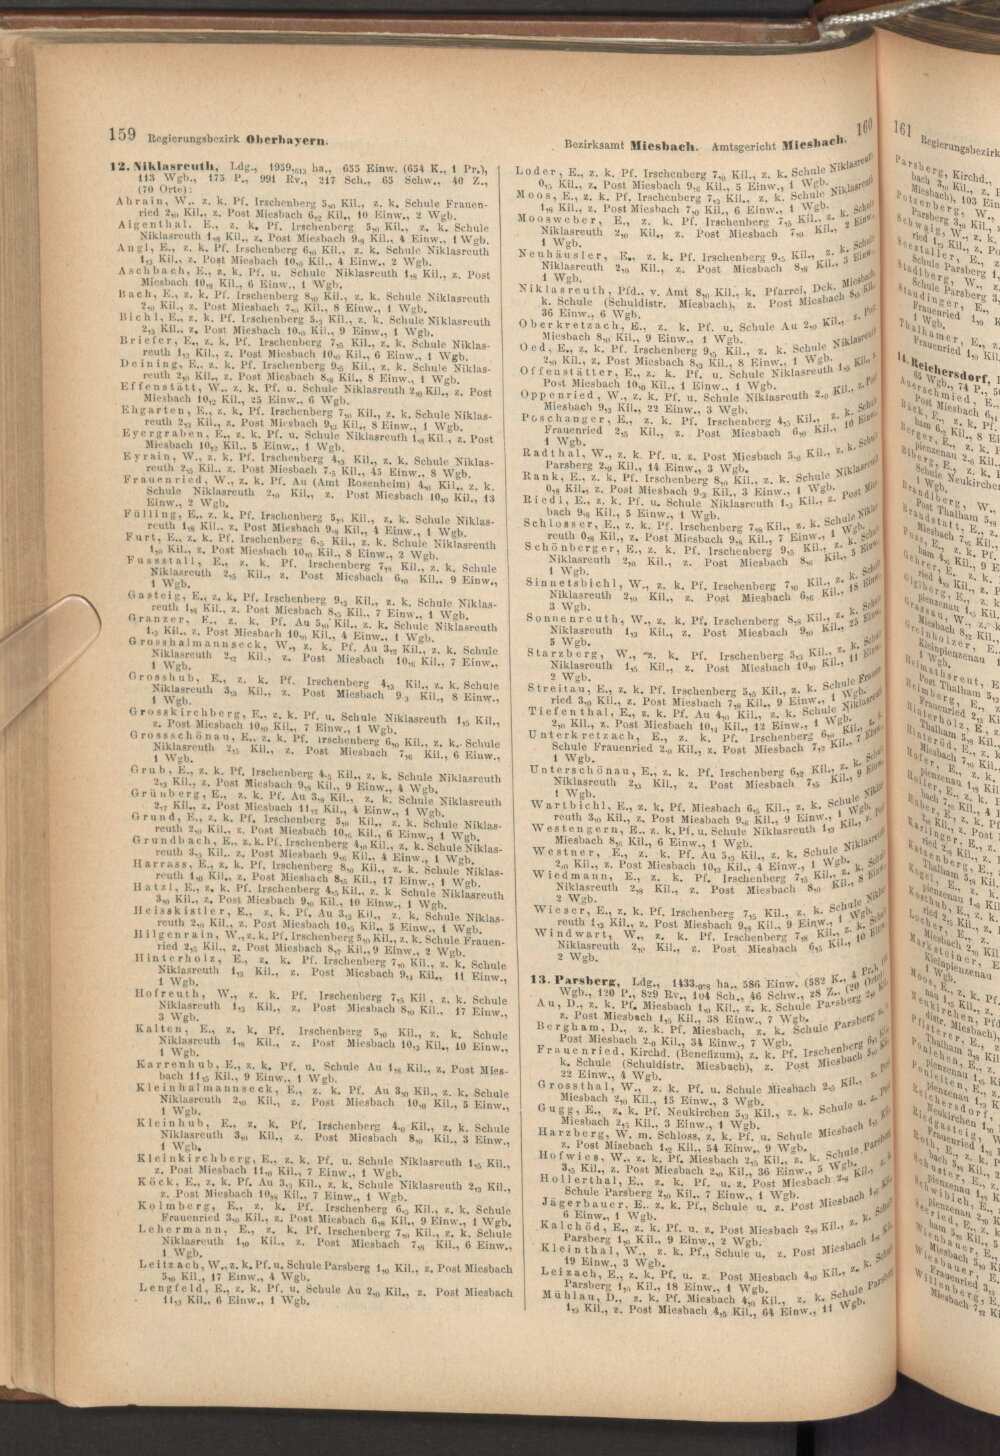 159 Regierungsbezirk Oberbayern.
12. Niklasreuth, Ldg., 1959,613 ha., 655 Einw. (654 K., 1 Pr.),
113 Wgb., 175 P., 991 Rv., 217 Sch., 65 Schw., 40 Z.,
(70 Orte):
Ahrain, W., z. k. Pf. Irschenberg 5,0 Kil., z. k. Schule Frauen-
ried 2,0 Kil., z. Post Miesbach 6,2 Kil., 10 Einw., 2 Wgb.
Aigenthal, E., z. k. Pf. Irschenberg 5,0 Kil., z. k. Schule
Niklasreuth 1,8 Kil., z. Post Miesbach 9,8 Kil., 4 Einw., 1 Wgb.
Angl, E., z. k. Pf. Irschenberg 6,0 Kil., z. k. Schule Niklasreuth
1,3 Kil., z. Post Miesbach 10,0 Kil., 4 Einw., 2 Wgb.
Aschbach, E., z. k. Pf. u. Schule Niklasreuth 1,8 Kil., z. Post
Miesbach 10,8 Kil., 6 Einw., 1 Wgb.
Bach, E., z. k. Pf. Irschenberg 8,0 Kil., z. k. Schule Niklasreuth
2,0 Kil., z. Post Miesbach 7,0 Kil., 8 Einw., 1 Wgb.
Bichl, E., z. k. Pf. Irschenberg 5,3 Kil., z. k. Schule Niklasreuth
2,3 Kil., z. Post Miesbach 10,0 Kil., 9 Einw., 1 Wgb.
Briefer, E., z. k. Pf. Irschenberg 7,5 Kil., z. k. Schule Niklas-
reuth 1,3 Kil., z. Post Miesbach 10,0 Kil., 6 Einw., 1 Wgb.
Deining, E., z. k. Pf. Irschenberg 9,5 Kil., z. k. Schule Niklas-
reuth 2,0 Kil., z. Post Miesbach 8,8 Kil., 8 Einw., 1 Wgb.
Effenstätt, W., z. k. Pf. u. Schule Niklasreuth 2,0 Kil., z. Post
Miesbach 10,2 Kil., 25 Einw., 6 Wgb.
Ehgarten, E., z. k. Pf. Irschenberg 7,0 Kil., z. k. Schule Niklas-
reuth 2,3 Kil., z. Post Miesbach 9,3 Kil., 8 Einw., 1 Wgb.
Eyergraben, E., z. k. Pf. u. Schule Niklasreuth 1,8 Kil., z. Post
Miesbach 10,2 Kil., 5 Einw., 1 Wgb.
Eyrain, W., z. k. Pf. Irschenberg 4,3 Kil., z. k. Schule Niklas-
reuth 2,5 Kil., z. Post Miesbach 7,5 Kil., 45 Einw., 8 Wgb.
Frauenried, W., z. k. Pf. Au (Amt Rosenheim) 4,0 Kil., z. k.
Schule Niklasreuth 2,0 Kil., z. Post Miesbach 10,0 Kil., 13
Einw., 2 Wgb.
Fülling, E., z. k. Pf. Irschenberg Kil., z. k. Schule Niklas-
reuth 1,8 Kil., z. Post Miesbach 9,8 Kil., 4 Einw., 1 Wgb.
Furt, E., z. k. Pf. Irschenberg 6,5 Kil., z. k. Schule Niklasreuth
1,0 Kil., z. Post Miesbach 10,0 Kil., 8 Einw., 2 Wgb.
Fussstall, E., z. k. Pf. Irschenberg 7,8 Kil., z. k. Schule
Niklasreuth 2,5 Kil., z. Post Miesbach 6,0 Kil., 9 Einw.,
1 Wgb.
Gasteig, E., z. k. Pf. Irschenberg 9,2 Kil., z. k. Schule Niklas-
reuth 1,8 Kil., z. Post Miesbach 8,5 Kil., 7 Einw., 1 Wgb.
Granzer, E., z. k. Pf. Au 5,0 Kil., z. k. Schule Niklasreuth
1,3 Kil., z. Post Miesbach 10,0 Kil., 4 Einw., 1 Wgb.
Grosshalmannseck, W., z. k. Pf. Au 3,2 Kil., z. k. Schule
Niklasreuth 2,2 Kil., z. Post Miesbach 10,6 Kil., 7 Einw.,
1 Wgb.
Grosshub, E., z. k. Pf. Irschenberg 4,3 Kil., z. k. Schule
Niklasreuth 3,3 Kil., z. Post Miesbach 9,3 Kil., 8 Einw.,
1 Wgb.
Grosskirchberg, E., z. k. Pf. u. Schule Niklasreuth 1,5 Kil.,
z. Post Miesbach 10,0 Kil., 7 Einw., 1 Wgb.
Grossschönau, E., z. k. Pf. Irschenberg 6,0 Kil., z. k. Schule
Niklasreuth 2,5 Kil., z. Post Miesbach 7,6 Kil., 6 Einw.,
1 Wgb.
Grub, E., z. k. Pf. Irschenberg 4,5 Kil., z. k. Schule Niklasreuth
2,3 Kil., z. Post Miesbach 9,8 Kil., 9 Einw., 4 Wgb.
Grünberg, E., z. k. Pf. Au 3,6 Kil., z. k. Schule Niklasreuth
2,7 Kil., z. Post Miesbach 11,2 Kil., 4 Einw., 1 Wgb.
Grund, E., z. k. Pf. Irschenberg 5,0 Kil., z. k. Schule Niklas-
reuth 2,0 Kil., z. Post Miesbach 10,6 Kil., 6 Einw., 1 Wgb.
Grundbach, E., z. k. Pf. Irschenberg 4,0 Kil., z. k. Schule Niklas-
reuth 3,3 Kil., z. Post Miesbach 9,6 Kil., 4 Einw., 1 Wgb.
Harrass, E., z. k. Pf. Irschenberg 8,0 Kil., z. k. Schule Niklas-
reuth 1,0 Kil., z. Post Miesbach 8,5 Kil., 17 Einw., 1 Wgb.
Hatzl, E., z. k. Pf. Irschenberg 4,5 Kil., z. k Schule Niklasreuth
3,0 Kil., z. Post Miesbach 9,0 Kil., 10 Einw., 1 Wgb.
Heisskistler, E., z. k. Pf. Au 3,3 Kil., z. k. Schule Niklas-
reuth 2,0 Kil., z. Post Miesbach 10,5 Kil., 5 Einw., 1 Wgb.
Hilgenrain, W., z. k. Pf. Irschenberg 5,0 Kil., z. k. Schule Frauen-
ried 2,5 Kil., z. Post Miesbach 8,7 Kil., 9 Einw., 2 Wgb.
Hinterholz, E., z. k. Pf. Irschenberg 7,0 Kil., z. k. Schule
Niklasreuth 1,3 Kil., z. Post Miesbach 9,4 Kil., 11 Einw.,
1 Wgb.
Hofreuth, W., z. k. Pf. Irschenberg 7,5 Kil., z. k. Schule
Niklasreuth 1,3 Kil., z. Post Miesbach 8,0 Kil., 17 Einw.,
3 Wgb.
Kalten, E., z. k. Pf. Irschenberg 5,0 Kil., z. k. Schule
Niklasreuth 1,8 Kil., z. Post Miesbach 10,3 Kil., 10 Einw.,
1 Wgb.
Karrenhub, E., z. k. Pf. u. Schule Au 1,8 Kil., z. Post Mies-
bach 11,5 Kil., 9 Einw., 1 Wgb.
Kleinhalmannseck, E., z. k. Pf. Au 3,0 Kil., z. k. Schule
Niklasreuth 2,0 Kil., z. Post Miesbach 10,0 Kil., 5 Einw.,
1 Wgb.
Kleinhub, E., z. k. Pf. Irschenberg 4,0 Kil., z. k. Schule
Niklasreuth 3,0 Kil., z. Post Miesbach 8,0 Kil., 3 Einw.,
1 Wgb.
Kleinkirchberg, E., z. k. Pf. u. Schule Niklasreuth 1,5 Kil.,
z. Post Miesbach 11,0 Kil., 7 Einw., 1 Wgb.
Köck, E., z. k. Pf. Au 3,3 Kil., z. k. Schule Niklasreuth 2,3 Kil.,
z. Post Miesbach 10,8 Kil., 7 Einw., 1 Wgb.
Kolmberg, E., z. k. Pf. Irschenberg 6,5 Kil., z. k. Schule
Frauenried 3,0 Kil., z. Post Miesbach 6,8 Kil., 9 Einw., 1 Wgb.
Lehermann, E., z. k. Pf. Irschenberg 7,0 Kil., z. k. Schule
Niklasreuth 1,0 Kil., z. Post Miesbach 7,8 Kil., 6 Einw.,
1 Wgb.
Leitzach, W., z. k. Pf. u. Schule Parsberg 1,0 Kil., z. Post Miesbach
5,0 Kil., 17 Einw., 4 Wgb.
Lengfeld, E., z. k. Pf. u. Schule Au 2,0 Kil., z. Post Miesbach
11,3 Kil., 6 Einw., 1 Wgb.
Bezirksamt Miesbach. Amtsgericht Miesbach. 160
Loder, E., z. k. Pf. Irschenberg 7,0 Kil., z. k. Schule Niklasreuth
0,5 Kil., z. Post Miesbach 9,6 Kil., 5 Einw., 1 Wgb.
Moos, E., z. k. Pf. Irschenberg 7,3 Kil., z. k. Schule Niklasreuth
1,8 Kil., z. Post Miesbach 7,0 Kil., 6 Einw., 1 Wgb.
Moosweber, E., z. k. Pf. Irschenberg 7,5 Kil., z. k. Schule
Niklasreuth 2,0 Kil., z. Post Miesbach 7,0 Kil., 2 Einw.,
1 Wgb.
Neuhäusler, E., z. k. Pf. Irschenberg 9,5 Kil., z. k. Schule
Niklasreuth 2,0 Kil., z. Post Miesbach 8,8 Kil., 3 Einw.,
1 Wgb.
Niklasreuth, Pfd., v. Amt 8,0 Kil., k. Pfarrei, Dek. Miesbach,
k. Schule (Schuldistr. Miesbach), z. Post Miesbach 8,5 Kil.,
36 Einw., 6 Wgb.
Oberkretzach, E., z. k. Pf. u. Schule Au 2,0 Kil., z. Post
Miesbach 8,0 Kil., 9 Einw., 1 Wgb.
Oed, E., z. K. Pf. Irschenberg 9,5 Kil., z. k. Schule Niklasreuth
2,0 Kil., z. Post Miesbach 8,3 Kil., 8 Einw., 1 Wgb.
Offenstätter, E., z. k. Pf. u. Schule Niklasreuth 1,5 Kil., z.
Post Miesbach 10,0 Kil., 1 Einw., 1 Wgb.
Oppenried, W., z. k. Pf. u. Schule Niklasreuth 2,0 Kil., z. Post
Miesbach 9,3 Kil., 22 Einw., 3 Wgb.
Poschanger, E., z. k. Pf. Irschenberg 4,5 Kil., z. k. Schule
Frauenried 2,5 Kil., z. Post Miesbach 6,0 Kil., 10 Einw.,
1 Wgb.
Radthal, W., z. k. Pf. u. z. Post Miesbach 5,0 Kil., z. k. Schule
Parsberg 2,0 Kil., 14 Einw., 3 Wgb.
Rank, E., z. k. Pf. Irschenberg 8,0 Kil., z. k. Schule Niklasreuth
0,8 Kil., z. Post Miesbach 9,3 Kil., 3 Einw., 1 Wgb.
Riedl, E., z. k. Pf. u. Schule Niklasreuth 1,3 Kil., z. Post Mies-
bach 9,8 Kil., 5 Einw., 1 Wgb.
Schlosser, E., z. k. Pf. Irschenberg 7,8 Kil., z. k. Schule Niklas-
reuth 0,8 Kil., z. Post Miesbach 9,8 Kil., 7 Einw., 1 Wgb.
Schönberger, E., z. k. Pf. Irschenberg 9,5 Kil., z. k. Schule
Niklasreuth 2,0 Kil., z. Post Miesbach 8,6 Kil., 5 Einw.,
1 Wgb.
Sinnetsbichl, W., z. k. Pf. Irschenberg 7,0 Kil., z. k. Schule
Niklasreuth 2,0 Kil., z. Post Miesbach 6,6 Kil., 18 Einw.,
3 Wgb.
Sonnenreuth, W., z. k. Pf. Irschenberg 8,8 Kil., z. k. Schule
Niklasreuth 1,3 Kil., z. Post Miesbach 9,0 Kil., 25 Einw.,
5 Wgb.
Starzberg, W., z. k. Pf. Irschenberg 5,3 Kil., z. k. Schule
Niklasreuth 1,5 Kil., z. Post Miesbach 10,0 Kil., 11 Einw.,
2 Wgb.
Streitau, E., z. k. Pf. Irschenberg 5,5 Kil., z. k. Schule Frauen-
ried 3,0 Kil., z. Post Miesbach 7,8 Kil., 9 Einw., 1 Wgb.
Tiefenthal, E., z. k. Pf. Au 4,0 Kil., z. k. Schule Niklasreuth
2,0 Kil., z. Post Miesbach 10,1 Kil., 12 Einw., 1 Wgb.
Unterkretzach, E., z. k. Pf. Irschenberg 6,0 Kil., z. k.
Schule Frauenried 2,0 Kil., z. Post Miesbach 7,2 Kil., 7 Einw.,
1 Wgb.
Unterschönau, E., z. k. Pf. Irschenberg 6,2 Kil., z. k. Schule
Niklasreuth 2,3 Kil., z. Post Miesbach 7,5 Kil., 9 Einw.,
1 Wgb.
Wartbichl, E., z. k. Pf. Miesbach 6,5 Kil., z. k. Schule Niklas-
reuth 3,0 Kil., z. Post Miesbach 9,6 Kil., 9 Einw., 1 Wgb.
Westengern, E., z. k. Pf. u. Schule Niklasreuth 1,3 Kil., z. Post
Miesbach 8,6 Kil., 6 Einw., 1 Wgb.
Westner, E., z. k. Pf. Au 5,3 Kil., z. k. Schule Niklasreuth
2,0 Kil., z. Post Miesbach 10,3 Kil., 4 Einw., 1 Wgb.
Wiedmann, E., z. k. Pf. Irschenberg 7,5 Kil., z. k. Schule
Niklasreuth 2,8 Kil., z. Post Miesbach 8,0 Kil., 8 Einw.,
2 Wgb.
Wieser, E., z. k. Pf. Irschenberg 7,5 Kil., z. k. Schule Niklas-
reuth 1,3 Kil., z. Post Miesbach 9,8 Kil., 9 Einw., 1 Wgb.
Windwart, W., z. k. Pf. Irschenberg 7,8 Kil., z. k. Schule
Niklasreuth 2,0 Kil., z. Post Miesbach 6,5 Kil., 10 Einw.,
2 Wgb.
13. Parsberg, Ldg., 1433,078 ha., 586 Einw. (582 K., 4 Pr.),
Wgb., 120 P., 829 Rv., 104 Sch., 46 Schw., 28 Z., (20 Orte):
Au, D., z. k. Pf. Miesbach 1,0 Kil., z. k. Schule Parsberg Kil.,
z. Post Miesbach 1,5 Kil., 38 Einw., 7 Wgb.
Bergham, D., z. k. Pf. Miesbach, z. k. Schule Parsberg u. z.
Post Miesbach 2,0 Kil., 34 Einw., 7 Wgb.
Frauenried, Kirchd. (Benefizum), z. k. Pf. Irschenberg 6,5 Kil.,
k. Schule (Schuldistr. Miesbach), z. Post Miesbach Kil.,
22 Einw., 4 Wgb.
Grossthal, W., z. k. Pf. u. Schule Miesbach 2,5 Kil., z. Post
Miesbach 2,0 Kil., 15 Einw., 3 Wgb.
Gugg, E., z. k. Pf. Neukirchen 5,3 Kil., z. k. Schule u. z. Post
Miesbach 2,5 Kil., 3 Einw., 1 Wgb.
Harzberg, W. m. Schloss, z. k. Pf. u. Schule Miesbach 1,5 Kil.,
z. Post Misebach 1,2 Kil., 54 Einw., 9 Wgb.
Hofwies, W., z. k. Pf. Miesbach 2,5 Kil., z. k. Schule Parsberg
3,5 Kil., z. Post Miesbach 2,0 Kil., 36 Einw., 5 Wgb.
Hollerthal, E., z. k. Pf. u. z. Post Miesbach 2,8 Kil., z. k.
Schule Parsberg 2,0 Kil., 7 Einw., 1 Wgb.
Jägerbauer, E., z. k. Pf., Schule u. z. Post Miesbach 1,8 Kil.,
6 Einw., 1 Wgb.
Kalchöd, E., z. k. Pf. u. z. Post Miesbach 2,8 Kil., z. k. Schule
Parsberg 1,0 Kil., 9 Einw., 2 Wgb.
Kleinthal, W., z. k. Pf., Schule u. z. Post Miesbach 1,8 Kil.,
19 Einw., 3 Wgb.
Leizach, E., z. k. Pf. u. z. Post Miesbach 4,0 Kil., z. k. Schule
Parsberg 1,0 Kil., 18 Einw., 1 Wgb.
Mühlau, D., z. k. Pf. Miesbach 4,0 Kil., z. k. Schule Parsberg
1,3 Kil., z. Post Miesbach 4,5 Kil., 64 Einw., 11 Wgb.
161 Regierungsbezirk
Parsberg, Kirchd.,
Potzenberg, W.,
Schwaig, W., z. k.
Seestaller, E., z.
Stadlberg, W., z.
Staudinger, E.,
Thalhamer, E., z.
14. Reichersdorf,
Auerschmied, E.,
Bäck, E., z. k. Pf.
Berger, E., z. k.
Biberg, E., z. k.
Brandlberg, W.,
Brandstatt, E., z.